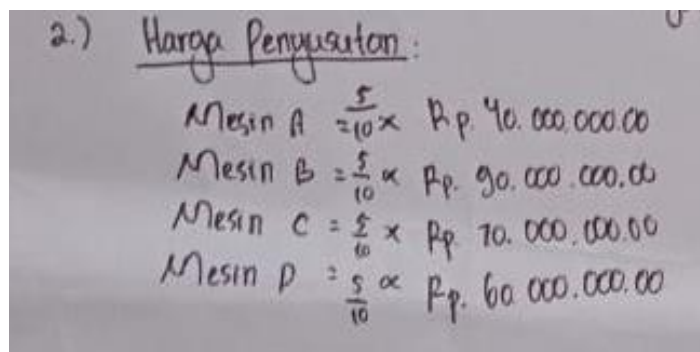 2.) Harga Penyusutan :
Mesin A = 5/10 x Rp. 40.000.000.00
Mesin B = 5/10 x Rp. 90.000.000.00
Mesin C = 5/10 x Rp. 70.000.000.00
Mesin D = 5/10 x Rp. 60.000.000.00